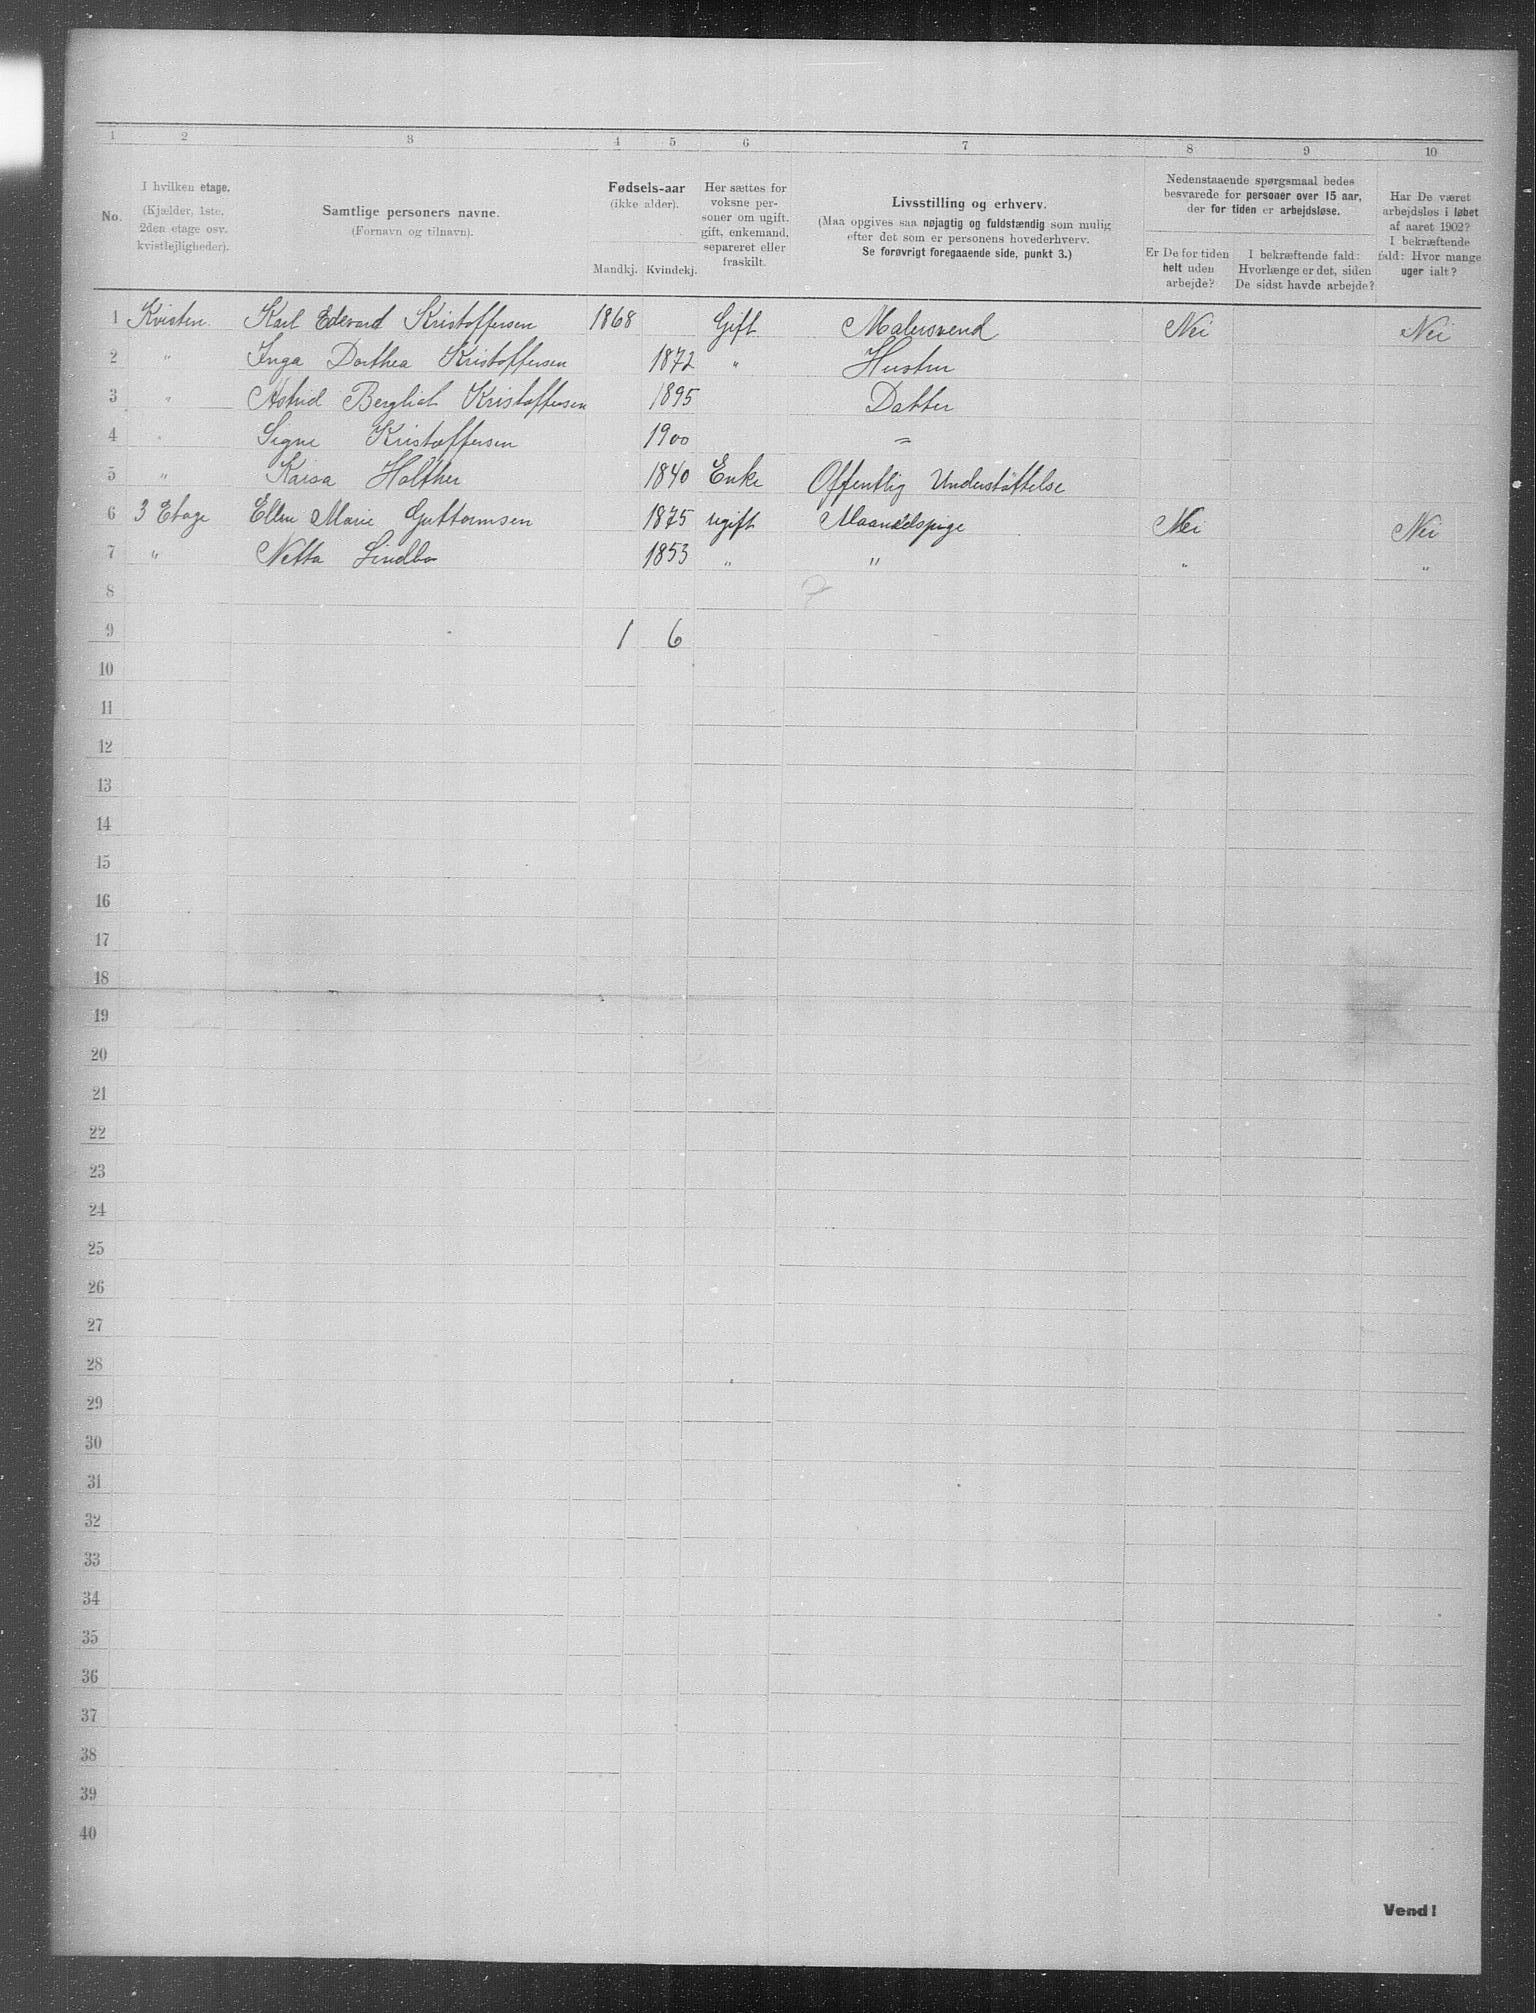 1 2 3 4 5 6 7 8 9 10
No.
I hvilken etage.
(Kjælder, 1ste,
2den etage osv.
kvistlejligheder).
Samtlige personers navne.
(Fornavn og tilnavn).
Fødsels-aar
(ikke alder).
Mandkj. Kvindekj.
Her sættes for
voksne per-
soner om ugift,
gift, enkemand,
separeret eller
fraskilt.
Livsstilling og erhverv.
(Maa opgives saa nøjagtig og fuldstændig som mulig
efter det som er personens hovederhverv.
Se forøvrigt foregaaende side, punkt 3.)
Nedenstaaende spørgsmaal bedes
besvarede for personer over 15 aar,
der for tiden er arbejdsløse.
Er De for tiden
helt uden
arbejde?
I bekræftende fald:
Hvorlænge er det, siden
De sidst havde arbejde?
Har De været
arbejdsløs i løbet
af aaret 1902?
I bekræftende
fald: Hvor mange
uger ialt?
1 Kvisten. Karl Edevard Kristoffersen 1868 Gift Malersvend Nei Nei
2 " Inga Dorthea Kristoffersen 1872 " Hustru
3 " Astrid Bergliot Kristoffersen 1895 Datter
4 " Signe Kristoffersen 1900 "
5 " Kaisa Holther 1840 Enke Offentlig Understøttelse
6 3 Etage Ellen Marie Guttormsen 1875 ugift Maanedspige Nei Nei
7 " Netta Lindbo 1853 " " " "
8 7
9 1 6
10
11
12
13
14
15
16
17
18
19
20
21
22
23
24
25
26
27
28
29
30
31
32
33
34
35
36
37
38
39
40
Vend!